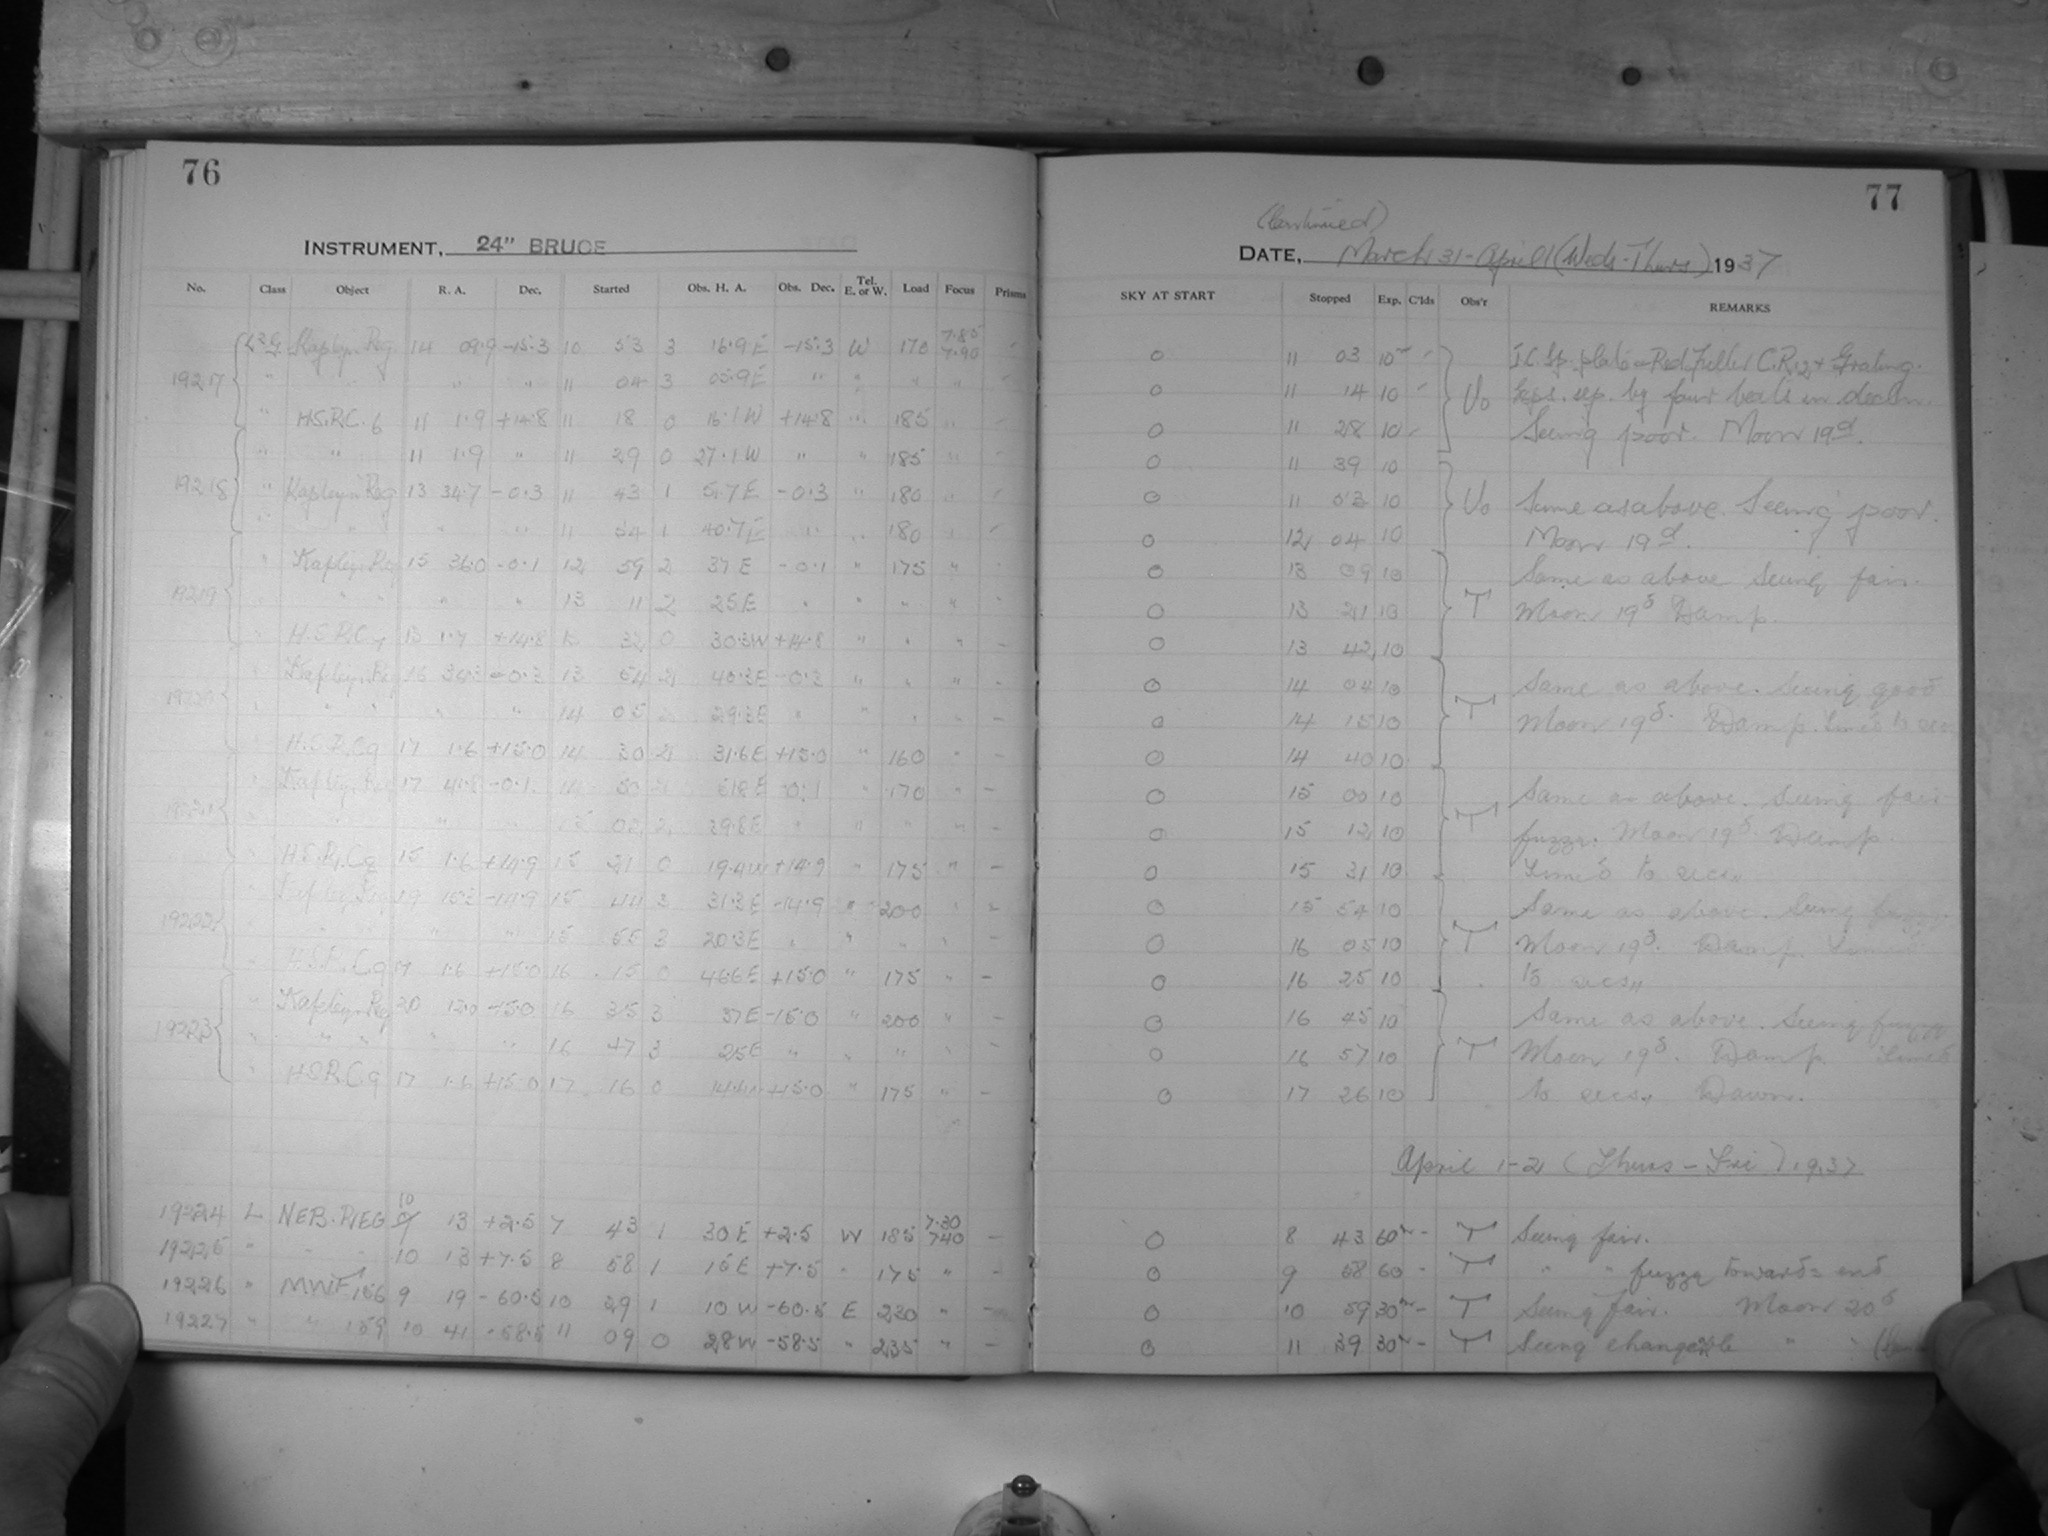 76
INSTRUMENT, 24" BRUCE
No. Class Object R. A. Dec. Started Obs. H. A. Obs. Dec. Tel. E. or W. Load Focus Prisms
Kapteyn Reg 14 09.9 -15.3 10 53 3 16.9 E -15.3 W 170 7.85 7.90
19217 " " " " " 11 04 3 05.9 E " " " "
" H.S.P.C. 6 11 1.9 +14.8 11 18 0 16.1 W +14.8 " 185 "
" " 11 1.9 " 11 29 0 27.1 W " " 185 "
19218 " Kapteyn Reg 13 34.7 -0.3 11 43 1 51.7 E -0.3 " 180 "
" " " " 11 54 1 40.7 E " " 180 "
" Kapteyn Reg 15 36.0 -0.1 12 59 2 37 E -0.1 " 175 "
19219 " " " " " 13 11 2 25 E " " " "
" 1.7 +14.8 13 32 0 30.3 W +14.8 " " "
" Kapteyn Reg 16 -0.3 13 54 2 40.3 E -0.3 " " "
19220 " " " " " 14 05 29.3 E " " " " -
" 17 1.6 +15.0 14 30 2 31.6 E +15.0 " 160 " -
" Kapteyn Reg 17 41.8 -0.1 14 50 -0.1 " 170 " -
19221 " " " 02 39.8 E " " " " -
" 15 1.6 +14.9 15 21 0 19.4 W +14.9 " 175 " -
" Kapteyn Reg 19 -14.9 15 44 3 31.3 E -14.9 " 200 " -
19222 " " " " 15 55 3 20.3 E " " " " -
" 17 1.6 +15.0 16 15 0 46.6 E +15.0 " 175 " -
" Kapteyn Reg 20 12.0 -15.0 16 35 3 37 E -15.0 " 200 " -
19223 " " " " " 16 47 3 25 E " " " " -
" 17 1.6 +15.0 17 16 0 +15.0 " 175 " -
19224 L NEB. REG 10 13 +2.5 7 43 1 30 E +2.5 W 185 7.30 7.40 -
19225 " " " 10 13 +7.5 8 58 1 15 E +7.5 " 175 " -
19226 " MWF 156 9 19 -60.5 10 29 1 10 W -60.5 E 230 " -
19227 " " 159 10 41 -58.5 11 09 0 28 W -58.5 " 235 " -
77
(Continued)
DATE, March 31 - April 1 (Weds - Thurs) 1937
SKY AT START Stopped Exp. C'lds Obs'r REMARKS
0 11 03 10m I.C. Sp. plate - Red Filter C.R.2 + Grating.
0 11 14 10 Vo Exps. sep. by four beats in declin.
0 11 28 10 Seeing poor. Moon 19d.
0 11 39 10
0 11 53 10 Vo Same as above. Seeing poor.
0 12 04 10 Moon 19d.
0 13 09 10 Same as above Seeing fair.
0 13 21 10 T Moon 19d Damp.
0 13 42 10
0 14 04 10 Same as above. Seeing good
0 14 15 10 T Moon 19d. Damp. Timed to
0 14 40 10
0 15 00 10 Same as above. Seeing fair
0 15 12 10 T fuzzy. Moon 19d. Damp.
0 15 31 10 Timed to secs.
0 15 54 10 Same as above. Seeing fuzzy
0 16 05 10 T Moon 19d. Damp. Timed
0 16 25 10 to secs.
0 16 45 10 Same as above. Seeing fuzzy
0 16 57 10 T Moon 19d. Damp. Timed
0 17 26 10 to secs. Dawn.
April 1-2 (Thurs - Fri) 1937
0 8 43 60m - T Seeing fair.
0 9 58 60 - T " " fuzzy towards end
0 10 59 30m - T Seeing fair. Moon 20d
0 11 39 30m - T Seeing changeable "